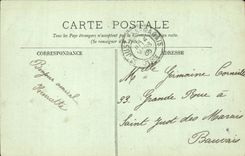 CARTE POSTALE
Tous les Pays étrangers n'acceptent pas la Correspondance au recto.
(Se renseigner à la Poste).
CORRESPONDANCE
ADRESSE
Bonjour amical
Mlle Germaine
93 Grande Rue à
Saint Just des Marais
Beauvais